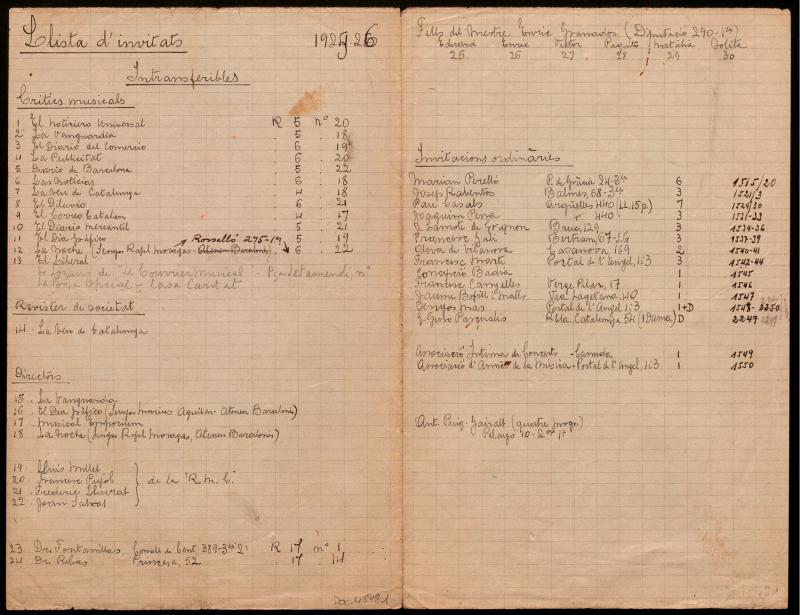 Llista d'invitats 1925-26
Intransferibles
Crítics musicals
1 El Noticiero Universal R 5 nº 20
2 La Vanguardia 5 18
3 El Diario del Comercio 6 19
4 La Publicitat 6 20
5 Diario de Barcelona 5 22
6 Las Noticias 6 18
7 La Veu de Catalunya 4 18
8 El Diluvio 6 21
9 El Correo Catalan 4 17
10 El Diario Mercantil 5 21
11 El Día Gráfico Rosselló 275-1er 5 19
12 La Noche (Senyor Rafel Moragas - Ateneu Barcelonès) 6 22
13 El Liberal
"Le Courrier musical" - Pça Letamendi, nº
Oficial - Casa Caritat
Revister de societat
14 - La Veu de Catalunya
Directors
15 - La Vanguardia
16 - El Día Gráfico (Senyor Marius Aguilar - Ateneu Barcelonès)
17 Musical Emporium
18 La Noche (Senyor Rafel Moragas, Ateneu Barcelonès)
19 Lluis Millet
20 Francesc Pujol
21 Frederic Lliurat
22 Joan Salvat
de la "R. M. C."
23 Dr. Fontanillas, Consell de Cent, 389-3er 2ª R 17 nº 1
24 Dr. Ribas Princesa, 52 17 14
Doc. 4548.1
Fills del Mestre Enric Granados (Diputació 290-1er)
Eduard Enric Victor Paquito Natàlia Solita
25 26 27 28 29 30
Invitacions ordinàries
Marian Perelló P. de Gràcia 24-3er 6 1515/20
Josep Rabentós Balmes, 68-3er 3 1521/3
Pau Casals Argüelles 440 (LL. 15 p.) 7 1524/30
Joaquim Pena " 440 3 1531-33
J. Lamote de Grignon Bruc, 129 3 1534-36
Francesc Galí Bertran, 67-S.G. 3 1537-39
Oliva de Vilanova Casanova 169 2 1540-41
Francesc Martí Portal de l'Angel, 1 i 3 3 1542-44
Concepció Badia 1 1545
Francesc Canyelles Verge Pilar, 17 1 1546
Jaume Bofill i Matas Via Layetana, 40 1 1547
Senyor Mas Portal de l'Angel 1 i 3 1+D 1548-2250
G. Gibo Pasqualis Rbla. Catalunya 54 (1 Dama) D 2249
Associació Intima de Concerts - Canuda 1 1549
Associació d'Amics de la Música - Portal de l'Angel, 1 i 3 1 1550
Ant. Puig-Gairalt (quatre progr.)
Pelayo 10-2on 1ª